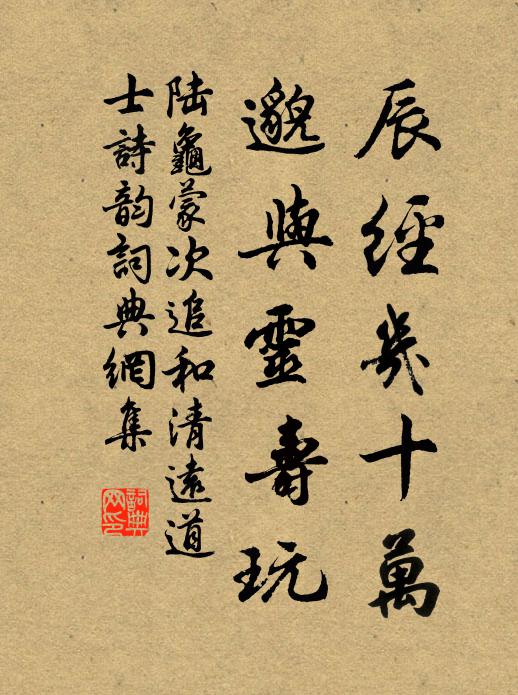 辰經幾十萬
邈與靈壽玩
陸龜蒙次追和清遠道
士詩韵詞典網集
詞典网印